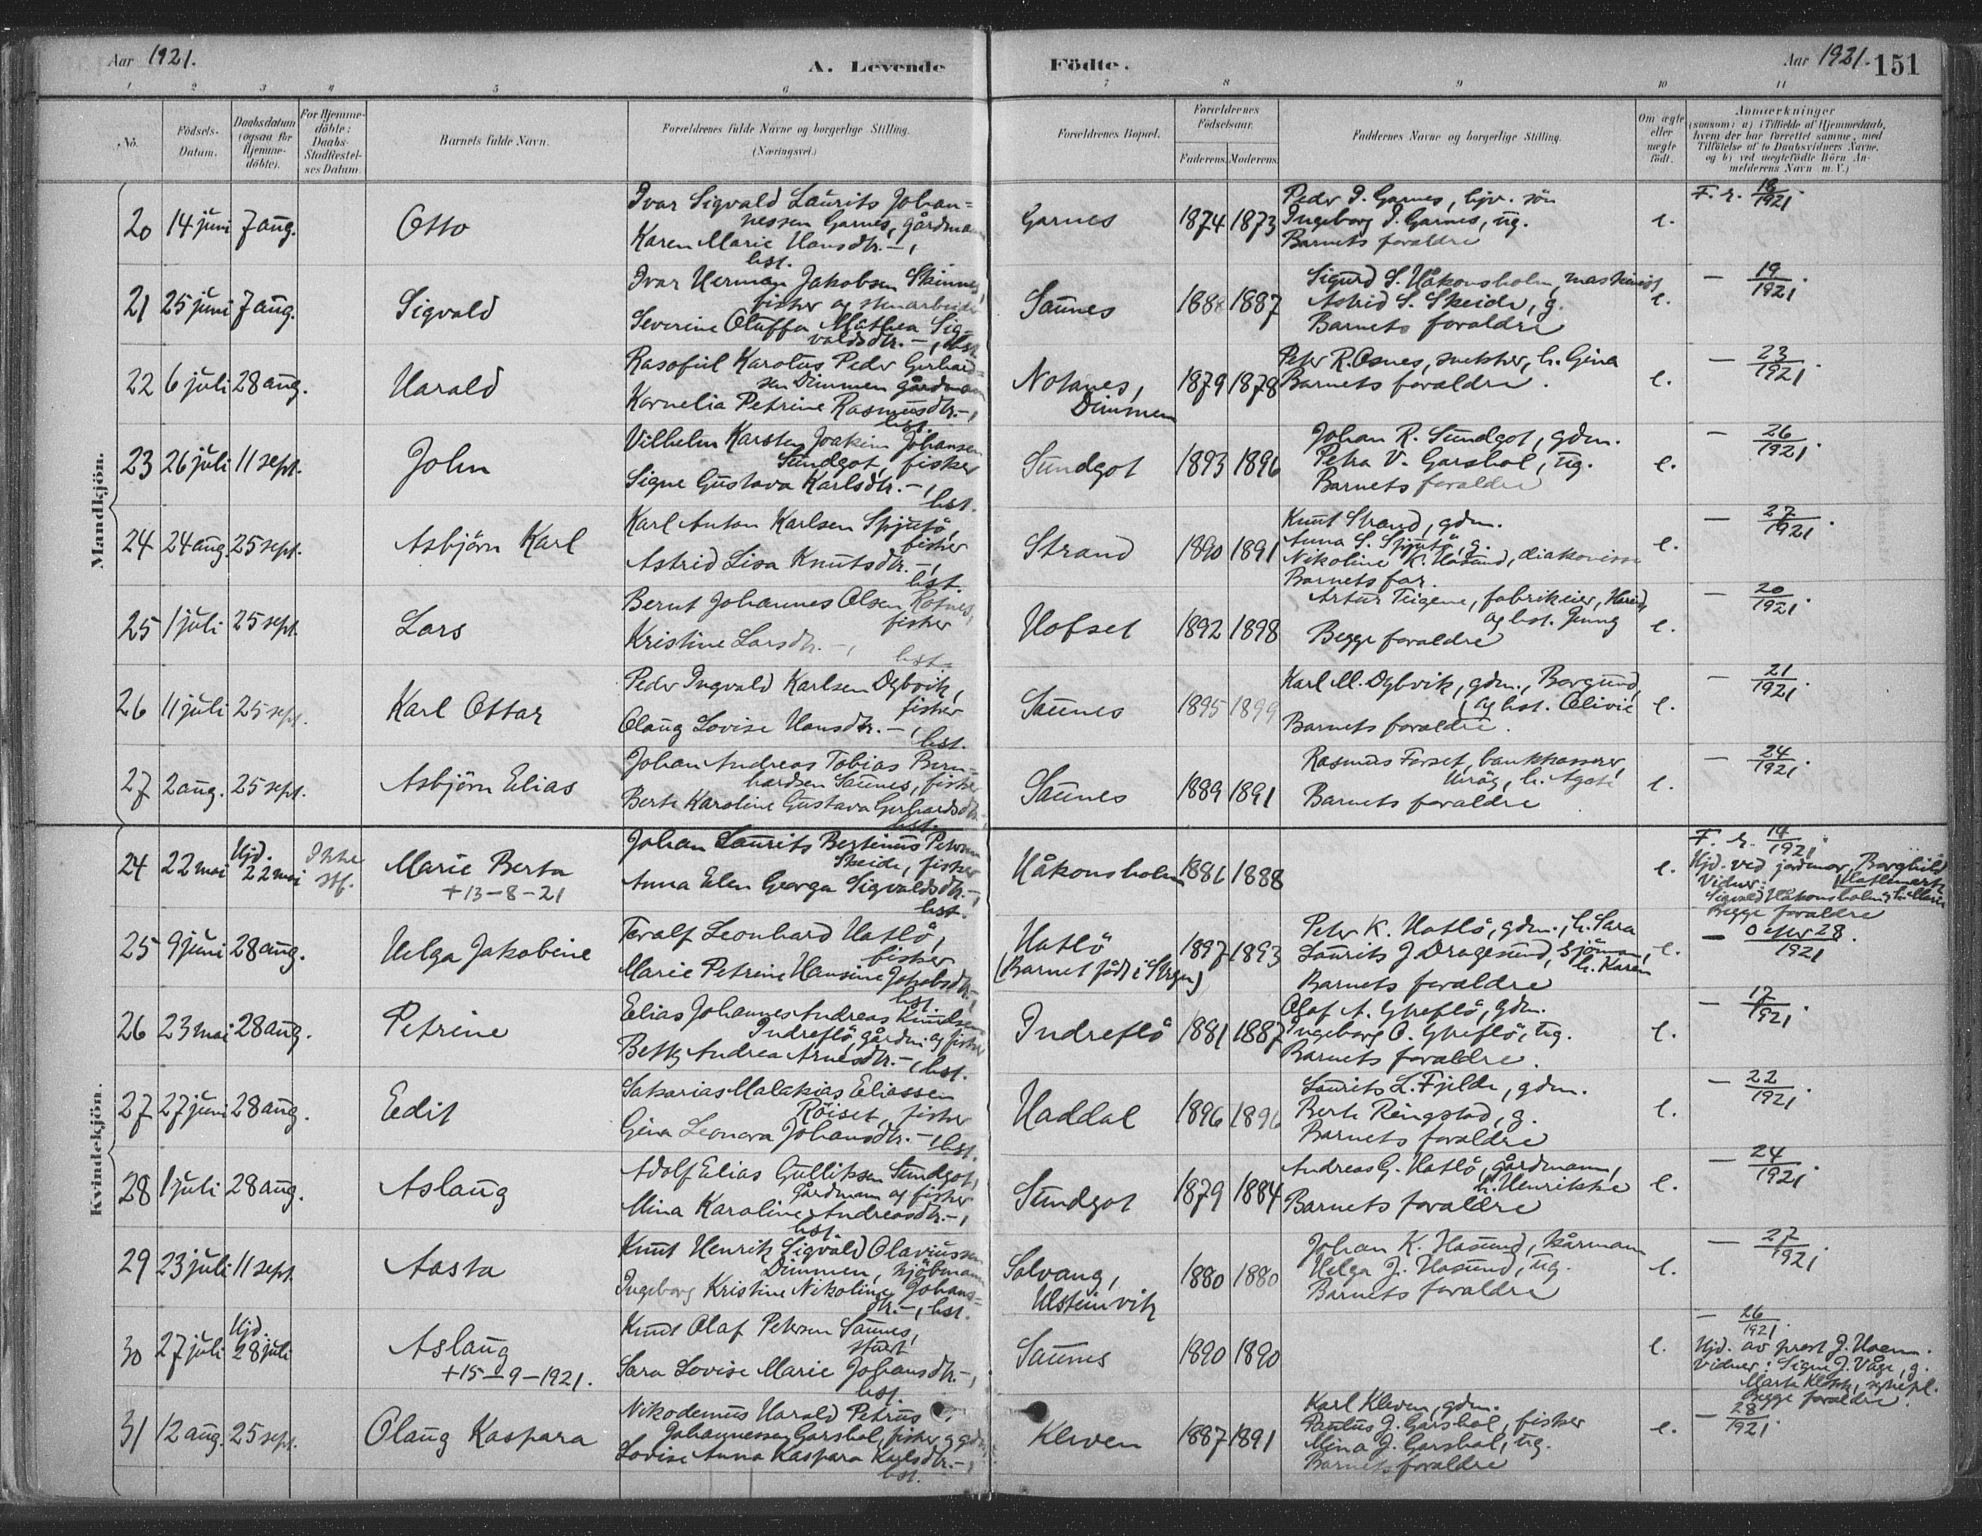 Aar 1921.
A. Levende
Födte.
Aar 1921. 151
1 2 3 4 5 6 7 8 9 10 11
No.
Födsels-Datum.
Daabsdatum (ogsaa for Hjemme-döbte).
For Hjemme-döbte: Daabs-Stadfæstel-ses Datum.
Barnets fulde Navn.
Forældrenes fulde Navne og borgerlige Stilling. (Næringsvei.)
Forældrenes Bopæl.
Forældrenes Födselsaar.
Faderens. Moderens.
Faddernes Navne og borgerlige Stilling.
Om ægte eller uægte födt.
Anmærkninger
(saasom: a) i Tilfælde af Hjemmedaab,
hvem der har forrettet samme, med
Tilföielse af to Daabsvidners Navne,
og b) ved uægtefödte Börn An-
melderens Navn m. V.)
Mandkjön.
20 14 juni 7 aug. Otto
Ivar Sigvald Laurits Johan=
nessen Garnes, gårdmann
Karen Marie Hansdtr. –,
hst.
Garnes 1874 1873
Peder I. Garnes, hjv. sön
Ingeborg I. Garnes, ug.
Barnets foraldre
e. F. r. 18/1921.
21 25 juni 7 aug. Sigvald
Ivar Herman Jakobsen Skinnes,
fisker og stenarbeider
Severine Oluffa Mathea Sig-
valdsdtr. –, hst.
Saunes 1888 1887
Sigurd S. Håkonsholm, maskinist
Astrid S. Skeide, g.
Barnets foraldre
e. – 19/1921.
22 6 juli 28 aug. Harald
Karolus Peder Gerhard-
sen Dimmen gårdmann
Kornelia Petrine Rasmusdtr. –,
hst.
Notanes,
Dimmen
1879 1878
Peter R. Osnes, snekker, h. Gina
Barnets foraldre.
e. – 23/1921.
23 26 juli 11 sept. John
Vilhelm Karsten Joakim Johansen
Sundgot, fisker
Signe Gustava Karlsdtr. –,
hst.
Sundgot 1893 1896
Johan R. Sundgot, gdm.
Petra V. Garshol, ug.
Barnets foraldre
e. – 26/1921.
24 24 aug. 25 sept. Asbjörn Karl
Karl Anton Karlsen Spjutö,
fisker
Astrid Lisa Knutsdtr. –,
hst.
Strand 1890 1891
Knut Strand, gdm.
Anna S. Spjutö, g.
Nikoline K. Hasund, diakonisse
Barnets far.
e. – 27/1921.
25 1 juli 25 sept. Lars
Bernt Johannes Olsen Rotnes,
fisker
Kristine Larsdtr. –,
hst.
Hofset 1892 1898
Artur Teigene, fabrikeier, Hareid
og hst. Jenny
Begge foraldre
e. – 20/1921.
26 11 juli 25 sept. Karl Ottar
Peder Ingvald Karlsen Dybvik,
fisker
Olaug Lovise Hansdtr. –,
hst.
Saunes 1895 1899
Karl M. Dybvik, gdm., Borgund,
og hst. Olivie
Barnets foraldre.
e. – 21/1921.
27 2 aug. 25 sept. Asbjörn Elias
Johan Andreas Tobias Bern-
hardsen Saunes, fisker
Berte Karoline Gustava Gerhardsdtr. –,
hst.
Saunes 1889 1891
Rasmus Forset, bankkasserer,
h. Agate
Barnets foraldre
e. – 24/1921.
Kvindekjön.
24 22 mai Hjd. 22 mai Ikke stf. Marie Berta
+ 13–8–21
Johan Laurits Bertinus Petersen
Skeide, fisker
Anna Elen Georga Sigvaldsdtr. –,
hst.
Håkonsholm 1886 1888
e. F. r. 14/1921.
Hjd. ved jordmor Borghild
Vidner:
Sigvald Håkonsholm
Begge foraldre
25 9 juni 28 aug. Helga Jakobine
Toralf Leonhard Hatlö,
fisker
Marie Petrine Hansine Jakobsdtr. –,
hst.
Hatlö
(Barnet född i
1897 1893
Peter K. Hatlö, gdm., h. Sara
Laurits J. Dragesund, sjömann,
h. Karen
Barnets foraldre
e. – 28/1921.
26 23 mai 28 aug. Petrine
Elias Johannes Andreas Knudsen
Indreflö, gårdm. og fisker
Betty Andrea Arnesdtr. –, hst.
Indreflö 1881 1887
Olaf A. Ytreflö, gdm.
Ingeborg O. Ytreflö, ug.
Barnets foraldre.
e. – 17/1921.
27 27 juni 28 aug. Edit
Sakarias Malakias Eliassen
Röiset, fisker
Gina Leonora Johansdtr. –, hst.
Haddal 1896 1896
Laurits L. Fjelde, gdm.
Berte Ringstad, g.
Barnets foraldre
e. – 22/1921.
28 1 juli 28 aug. Aslaug
Adolf Elias Gulliksen Sundgot,
gårdmann og fisker
Mina Karoline Andreasdtr. –,
hst.
Sundgot 1879 1884
Andreas G. Hatlö, gårdmann,
h. Henrikke
Barnets foraldre
e. – 24/1921.
29 23 juli 11 sept. Aasta
Knut Henrik Sigvald Olaviussen
Dimmen, kjöbmann
Ingeborg Kristine Nikoline Johans=
dtr. –, hst.
Solvang,
Ulsteinvik
1880 1880
Johan K. Hasund, kårmann
Helga J. Hasund, ug.
Barnets foraldre
e. – 27/1921.
30 27 juli Hjd. 28 juli Aslaug
+ 15–9–1921.
Knut Olaf Petersen Saunes,
Sara Lovise Marie Johansdtr. –,
hst.
Saunes 1890 1890
e. – 26/1921.
Hjd. av prest J. Hoem.
Vidner: Signe J. Våge, g.
Marta
Begge foraldre.
31 12 aug. 25 sept. Olaug Kaspara
Nikodemus Harald Petrus
Johannessen Garshol, fisker og gdm.
Lovise Anna Kaspara Karlsdtr. –,
hst.
Kleven 1887 1891
Karl Kleven, gdm.
Paulus J. Garshol, fisker
Mina J. Garshol, ug.
Barnets foraldre
e. – 28/1921.